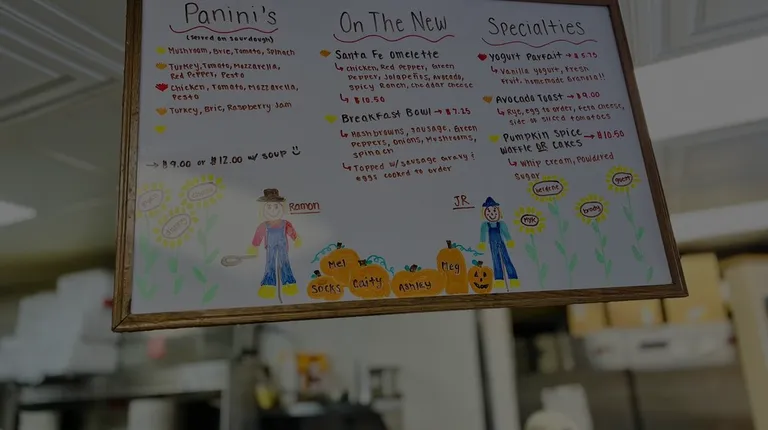 Panini's
(served on sourdough)
Mushroom, Brie, Tomato, Spinach
Turkey, Tomato, Mozzarella,
Red Pepper, Pesto
Chicken, Tomato, Mozzarella,
Pesto
Turkey, Brie, Raspberry Jam
→ $9.00 or $12.00 w/ soup
On The New
Santa Fe omelette
↳ Chicken, Red Pepper, Green
Pepper, Jalapeños, Avocado,
Spicy Ranch, Cheddar Cheese
↳ $10.50
Breakfast Bowl → $7.25
↳ Hashbrowns, Sausage, Green
Peppers, Onions, Mushrooms,
Spinach
↳ Topped w/ sausage gravy !
eggs cooked to order
Specialties
Yogurt Parfait → $5.75
↳ Vanilla yogurt, Fresh
Fruit, homemade Granola!!
Avocado Toast → $9.00
↳ Rye, egg to order, Feta cheese,
side of sliced tomatoes
Pumpkin Spice
Waffle OR Cakes → $10.50
↳ Whip cream, Powdered
Sugar
Ramon
JR
Mel
Socks
Caity
Ashley
Meg
brady